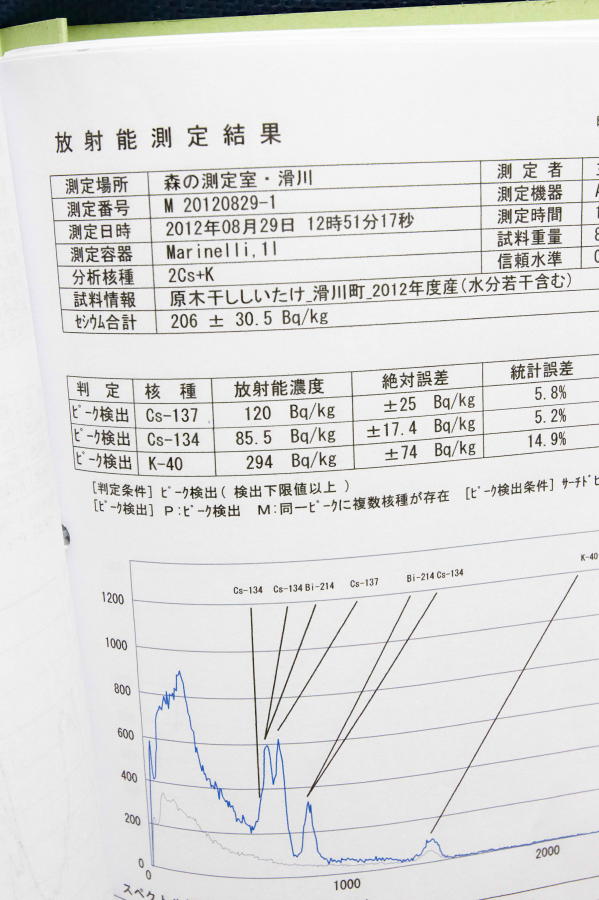 放射能測定結果
測定場所 森の測定室・滑川 測定者
測定番号 M 20120829-1 測定機器
測定日時 2012年08月29日 12時51分17秒 測定時間
測定容器 Marinelli,1l 試料重量
分析核種 2Cs+K 信頼水準
試料情報 原木干ししいたけ_滑川町_2012年度産(水分若干含む)
ｾｼｳﾑ合計 206 ± 30.5 Bq/kg
判定 核種 放射能濃度 絶対誤差 統計誤差
ﾋﾟｰｸ検出 Cs-137 120 Bq/kg ±25 Bq/kg 5.8%
ﾋﾟｰｸ検出 Cs-134 85.5 Bq/kg ±17.4 Bq/kg 5.2%
ﾋﾟｰｸ検出 K-40 294 Bq/kg ±74 Bq/kg 14.9%
[判定条件] ﾋﾟｰｸ検出( 検出下限値以上 )
[ﾋﾟｰｸ検出] P:ﾋﾟｰｸ検出 M:同一ﾋﾟｰｸに複数核種が存在 [ﾋﾟｰｸ検出条件] ｻｰﾁﾄﾞﾋﾟ
Cs-134 Cs-134 Bi-214 Cs-137 Bi-214 Cs-134 K-40
1200
1000
800
600
400
200
0
1000 2000
スペクト